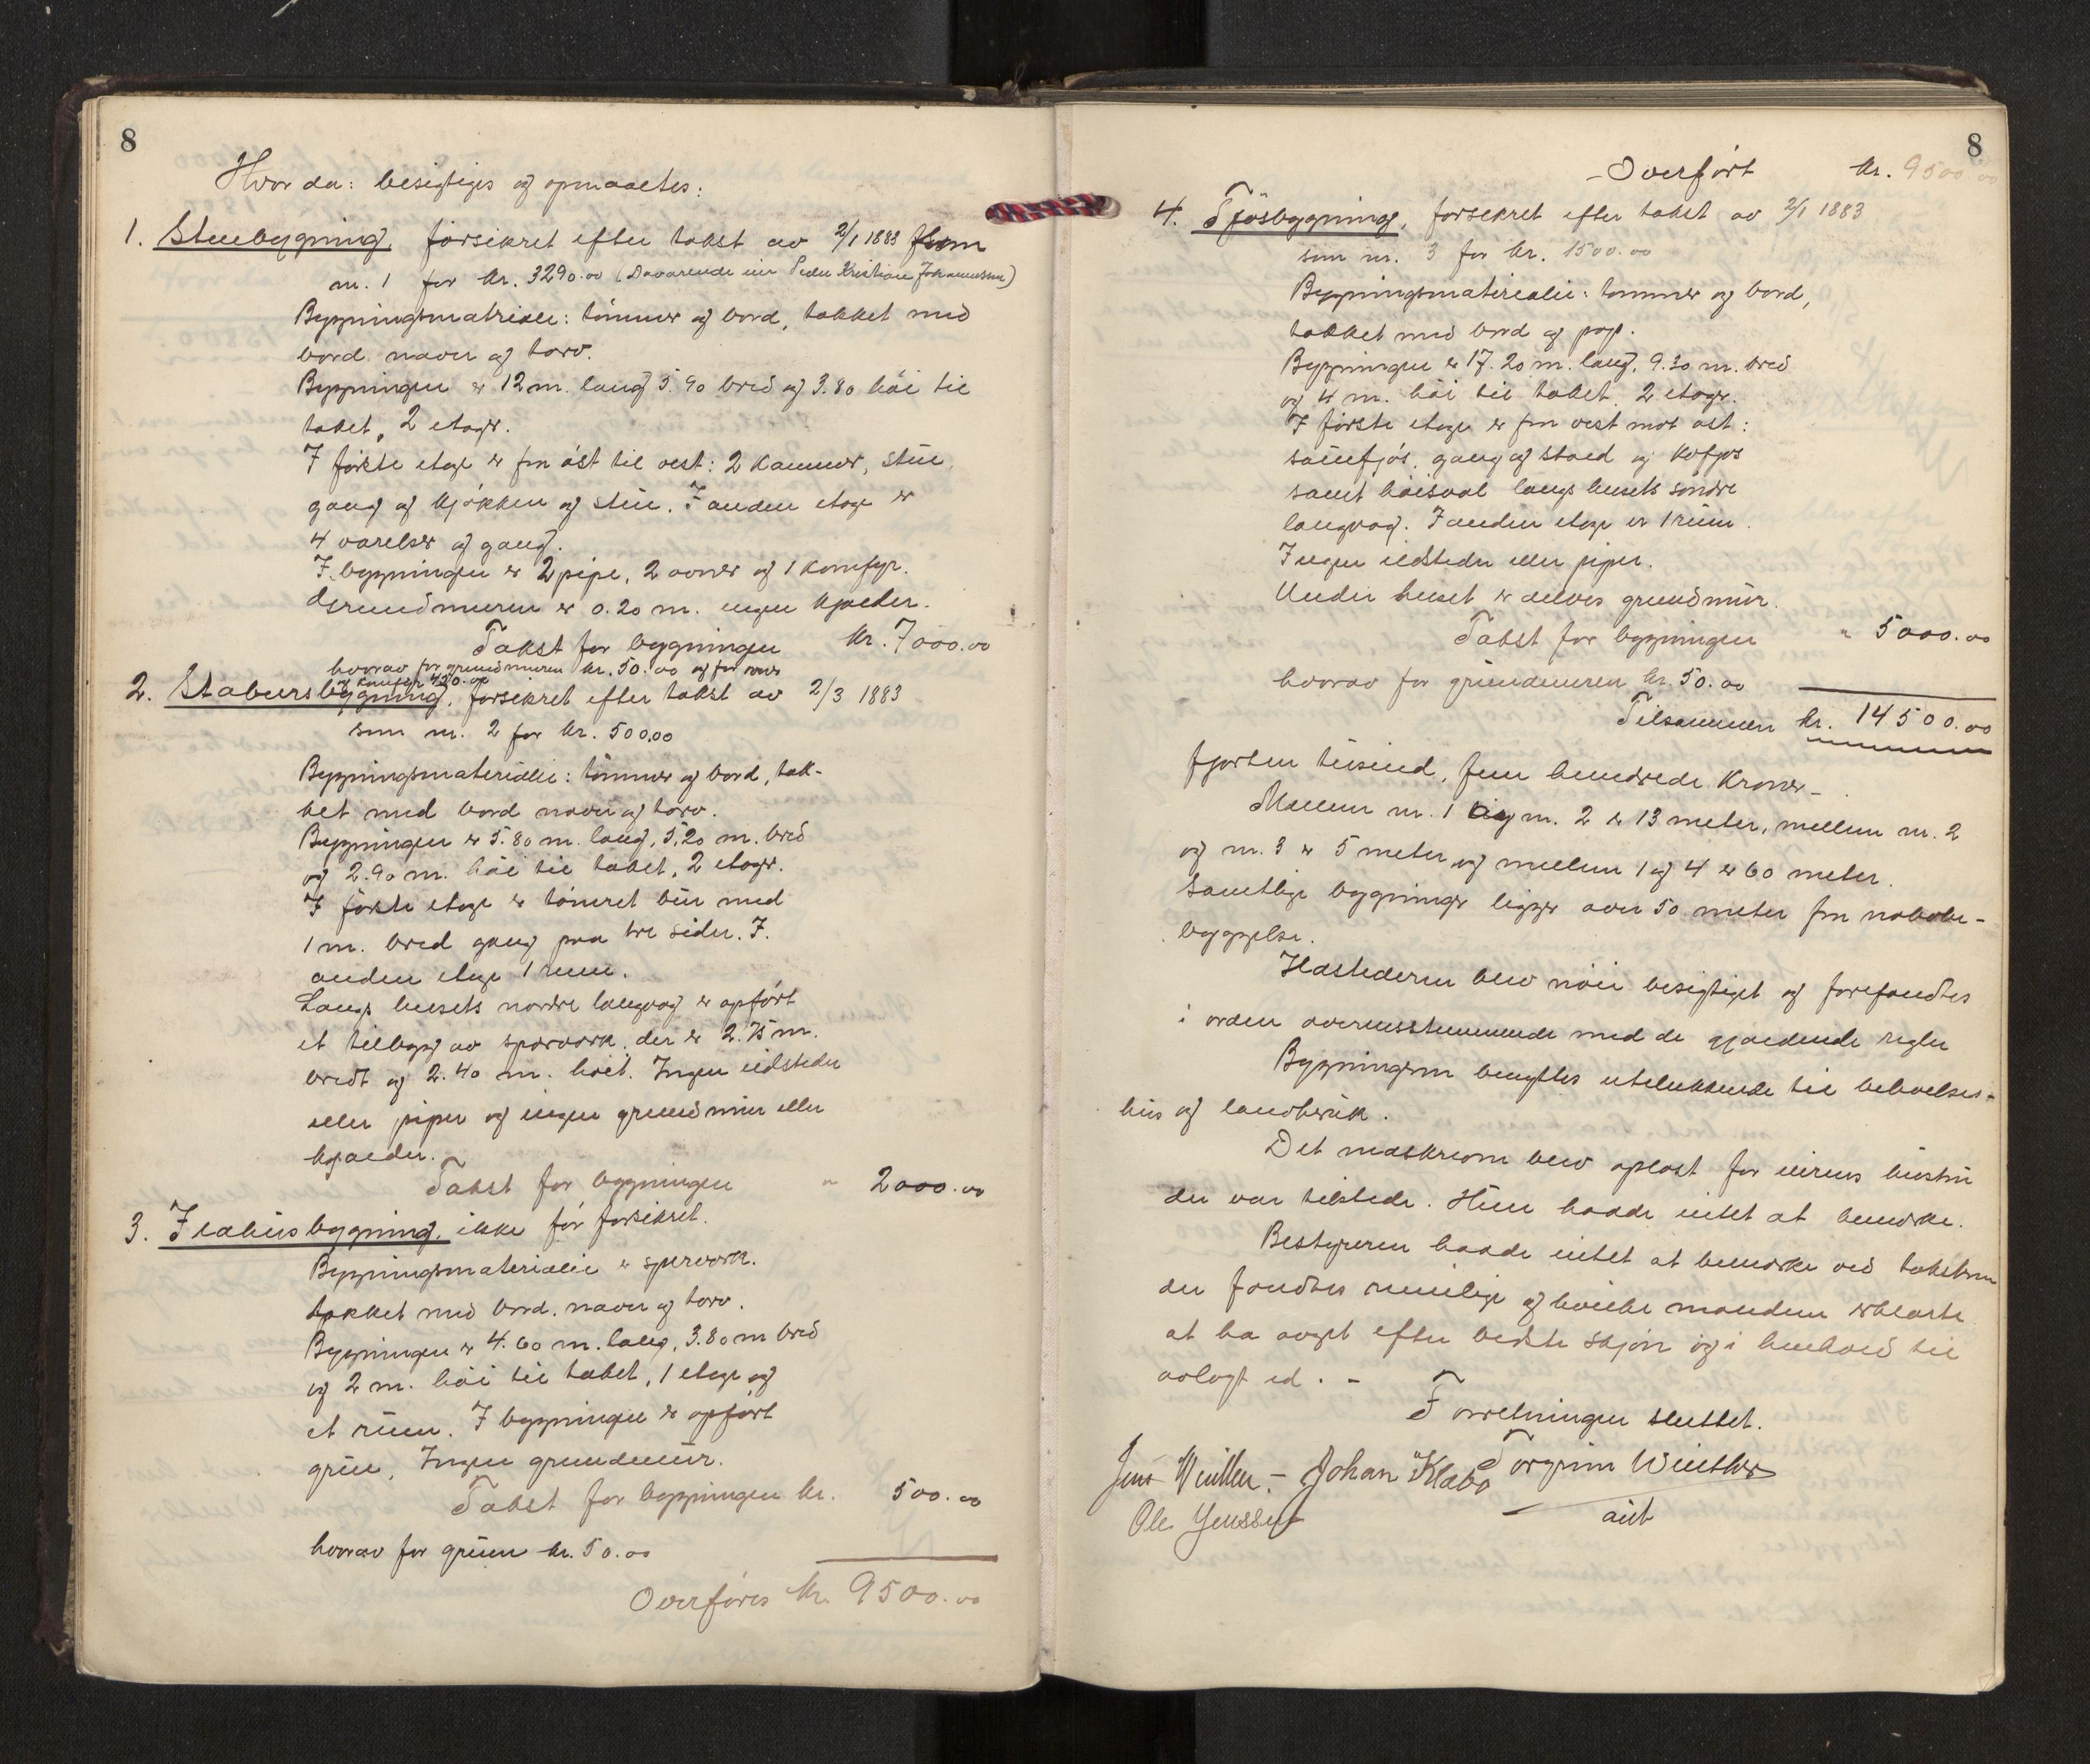 8
Hvorda: besigtiges og opmaaltes:
1. Stuebygning, forsikret efter takst av 2/1 1883 som
nr. 1 for kr. 3290.00 (Davarende eier Peder Kristian Johannessen)
Bygningsmateriale: tømmer og bord, takket med
bord næver og torv.
Bygningen er 12 m. lang 5.90 bred og 3.80 høi til
taket, 2 etager.
I første etage er fra øst til vest: 2 kammer, stue,
gang og kjøkken og stue. I anden etage er
4 værelser og gang.
I bygningen er 2 pipe, 2 ovner og 1 komfyr.
Grundmuren er 0.20 m. ingen kjælder.
Takst for bygningen kr. 7000.00
hvorav for grundmuren kr. 50.00 og for ovner
og komfyr 450.00
2. Stabursbygning, forsikret efter takst av 2/3 1883
som nr. 2 for kr. 500.00
Bygningsmateriale: tømmer og bord, tak-
ket med bord næver og torv.
Bygningen er 5.80 m. lang, 5.20 m. bred
og 2.90 m. høi til taket, 2 etager.
I første etage er tømret bur med
1 m. bred gang paa tre sider. I
anden etage 1 rum.
Langs husets nordre langvæg er opført
et tilbygg av sperverk, der er 2.75 m.
bredt og 2.40 m. høit. Ingen ildsteder
eller piper og ingen grundmur eller
kjælder.
Takst for bygningen " 2000.00
3. Ildhusbygning, ikke før forsikret.
Bygningsmateriale er sperverk.
takket med bord, næver og torv.
Bygningen er 4.60 m. lang, 3.80 m bred
og 2 m. høi til taket, 1 etage og
et rum. I bygningen er opført
grue, Ingen grundmur.
Takst for bygningen kr. 500.00
hvorav for gruen kr. 50.00
Overføres kr. 9500.00
8
Overført kr. 9500.00
4. Fjøsbygning, forsikret efter takst av 2/1 1883
som nr. 3 for kr. 1500.00
Bygningsmateriale: tømmer og bord,
takket med bord og pap.
Bygningen er 17.20 m. lang, 9.30 m. bred
og 4 m. høi til taket, 2 etager.
I første etage er fra vest mot øst:
sauefjøs, gang og stald og kufjøs
samt høisval langs husets søndre
langvæg. I anden etage er 1 rum.
Ingen ildsteder eller piper.
Under huset er delvis grundmur.
Takst for bygningen " 5000.00
hvorav for grundmuren kr. 50.00
Tilsammen kr. 14500.00
fjorten tusind, fem hundrede Kroner–
Mellem nr. 1 og nr. 2 er 13 meter, mellem nr. 2
og nr. 3 er 5 meter og mellem 1 og 4 er 60 meter.
Samtlige bygninger ligger over 50 meter fra nabobe-
byggelse.
Ildstederne blev nøie besigtiget og forefandtes
i orden overensstemmende med de gjældende regler
Bygningerne benyttes utelukkende til beboelses-
hus og landbruk.
Det maskrevne blev oplæst for eierens hustru
der var tilstede. Hun hadde intet at bemerke.
Bestyreren hadde intet at bemerke ved taksterne
der fandtes rimelige og hvilke mændene erklærte
at ha avgit efter bedste skjøn og i henhold til
avlagt ed. –
Forretningen sluttet.
Jens Winther. – Johan Klabo Torgrim Winther
Ole Jenssen